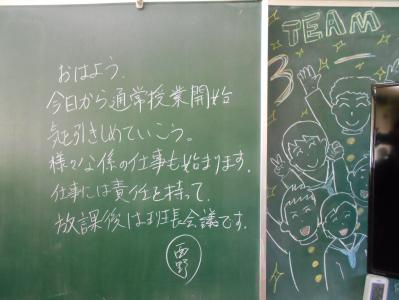 おはよう.
今日から通常授業開始
気を引きしめていこう。
様々な係の仕事も始まります.
仕事には責任を持って.
放課後は班長会議です.
西野
TEAM
3-